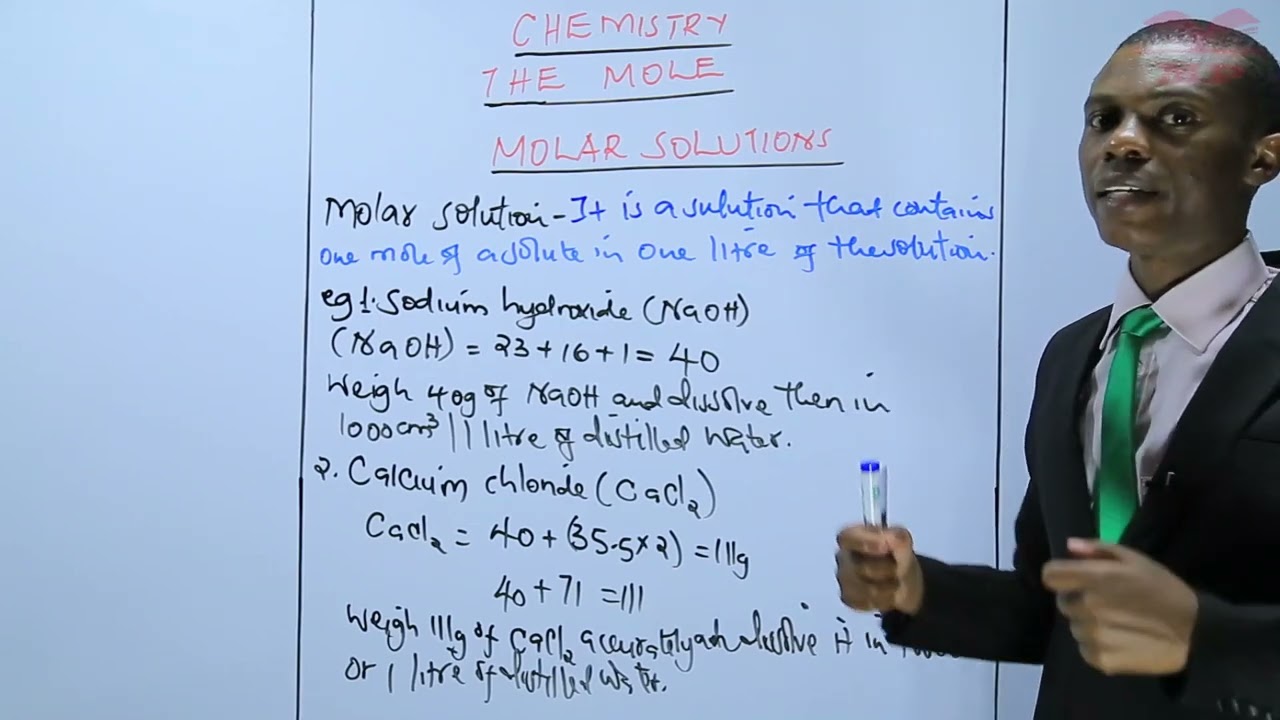 CHEMISTRY
THE MOLE
MOLAR SOLUTIONS
Molar solution - It is a solution that contains
one mole of a solute in one litre of the solution.
eg 1. Sodium hydroxide (NaOH)
(NaOH) = 23 + 16 + 1 = 40
Weigh 40g of NaOH and dissolve then in
1000cm³ | 1 litre of distilled water.
2. Calcium chloride (CaCl₂)
CaCl₂ = 40 + (35.5 x 2) = 111g
40 + 71 = 111
Weigh 111g of CaCl₂ accurately and dissolve it in
or 1 litre of distilled water.